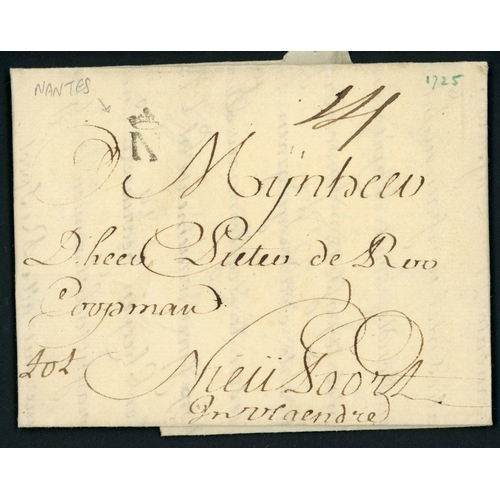 NANTES
1725
N
Mÿnheer
D'heer Pieter de Roo
Coopman
tot
Nieüpoort
In vlaendre